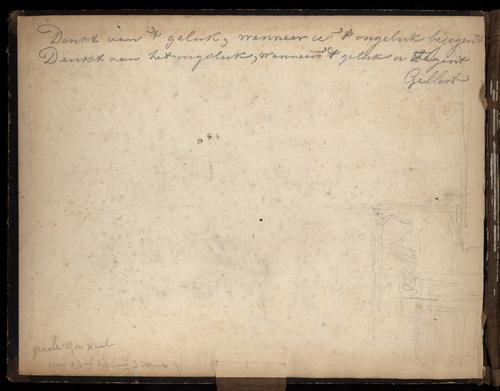 Denkt aan 't geluk, wanneer u 't ongeluk bejegent
Denkt aan het ongeluk, wanneer 't geluk u zegent
Gellert